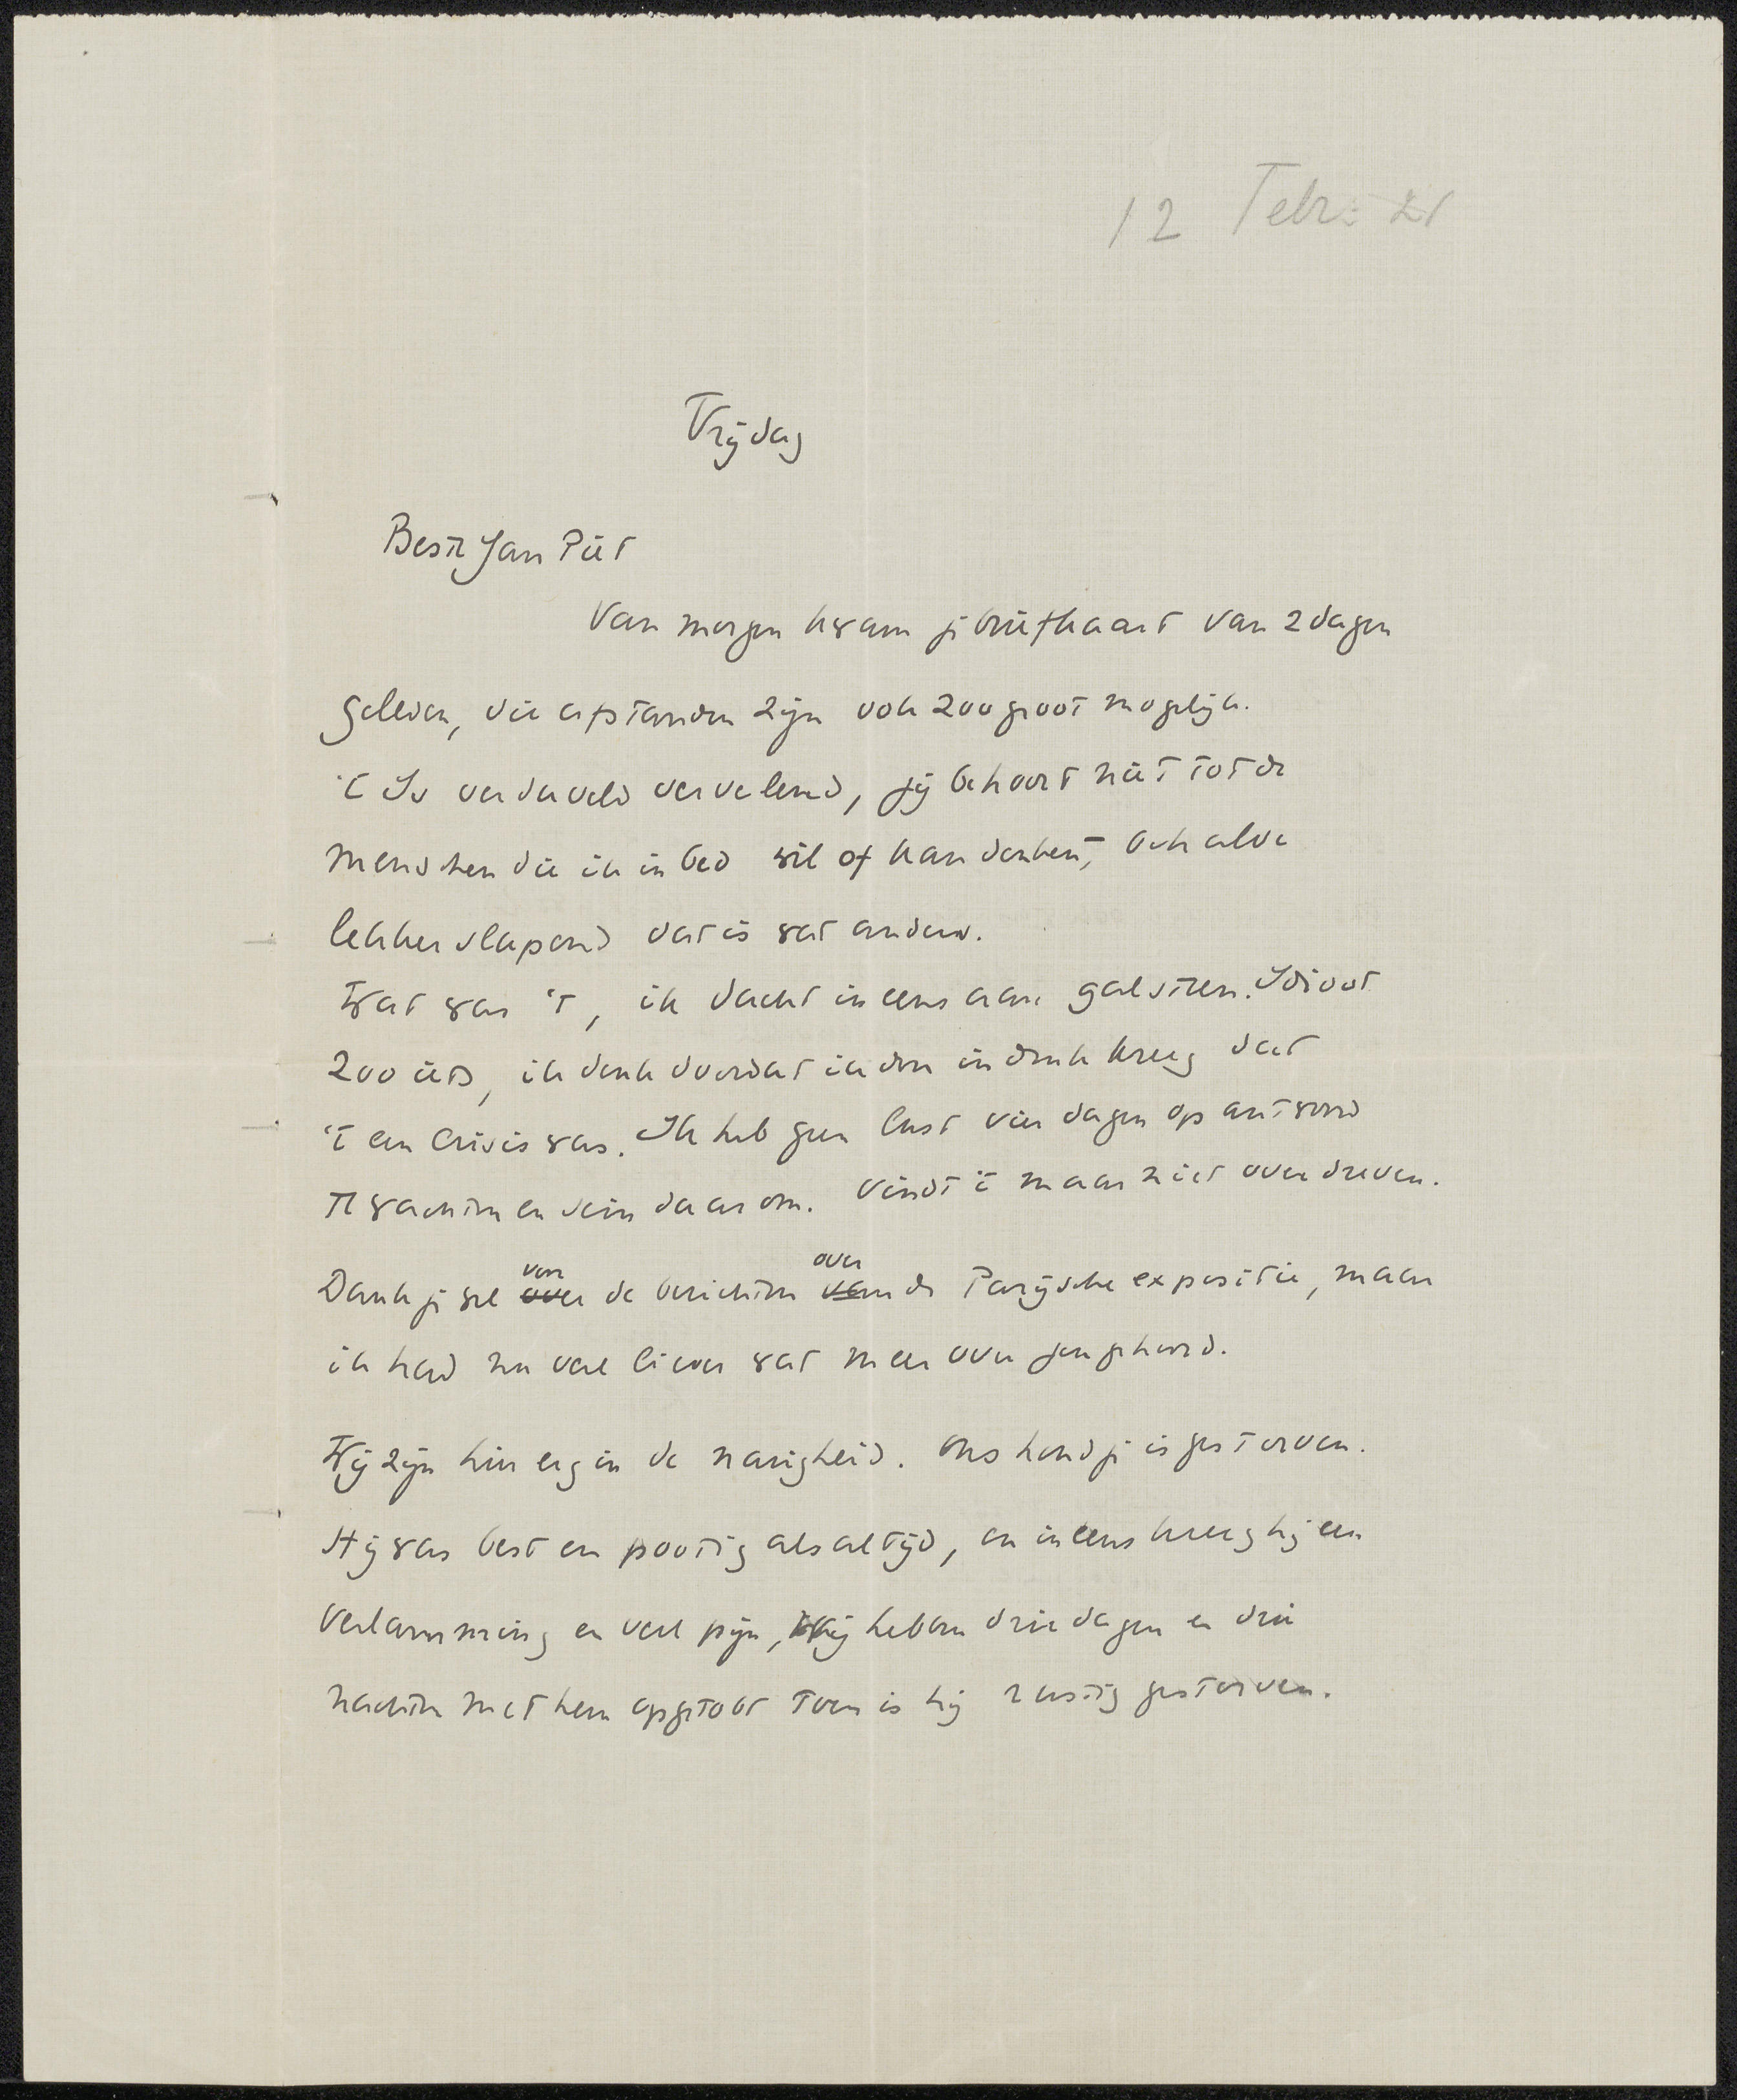 12 Febr: 21
Vrijdag
Beste Jan Piet
Van morgen kwam je briefkaart van 2 dagen
geleden, die afstanden zijn ook zoo groot mogelijk.
't Is verduveld vervelend, jij behoort niet tot de
menschen die ik in bed wil of kan denken, behalve
lekker slapend dat is wat anders.
Wat was 't, ik dacht ineens aan galsteen. Idioot
zoo iets, ik denk doordat ik den indruk kreeg dat
't een crisis was. Ik heb geen lust vier dagen op antwoord
te wachten en sein daarom. Vindt 't maar niet overdreven.
Dank je wel over voor de berichten van over de Parijsche expositie, maar
ik had nu veel liever wat meer over jou gehoord.
Wij zijn hier erg in de narigheid. Ons hondje is gestorven.
Hij was best en pootig als altijd, en ineens kreeg hij een
verlamming en veel pijn, wij hebben drie dagen en drie
nachten met hem opgetobt toen is hij rustig gestorven.